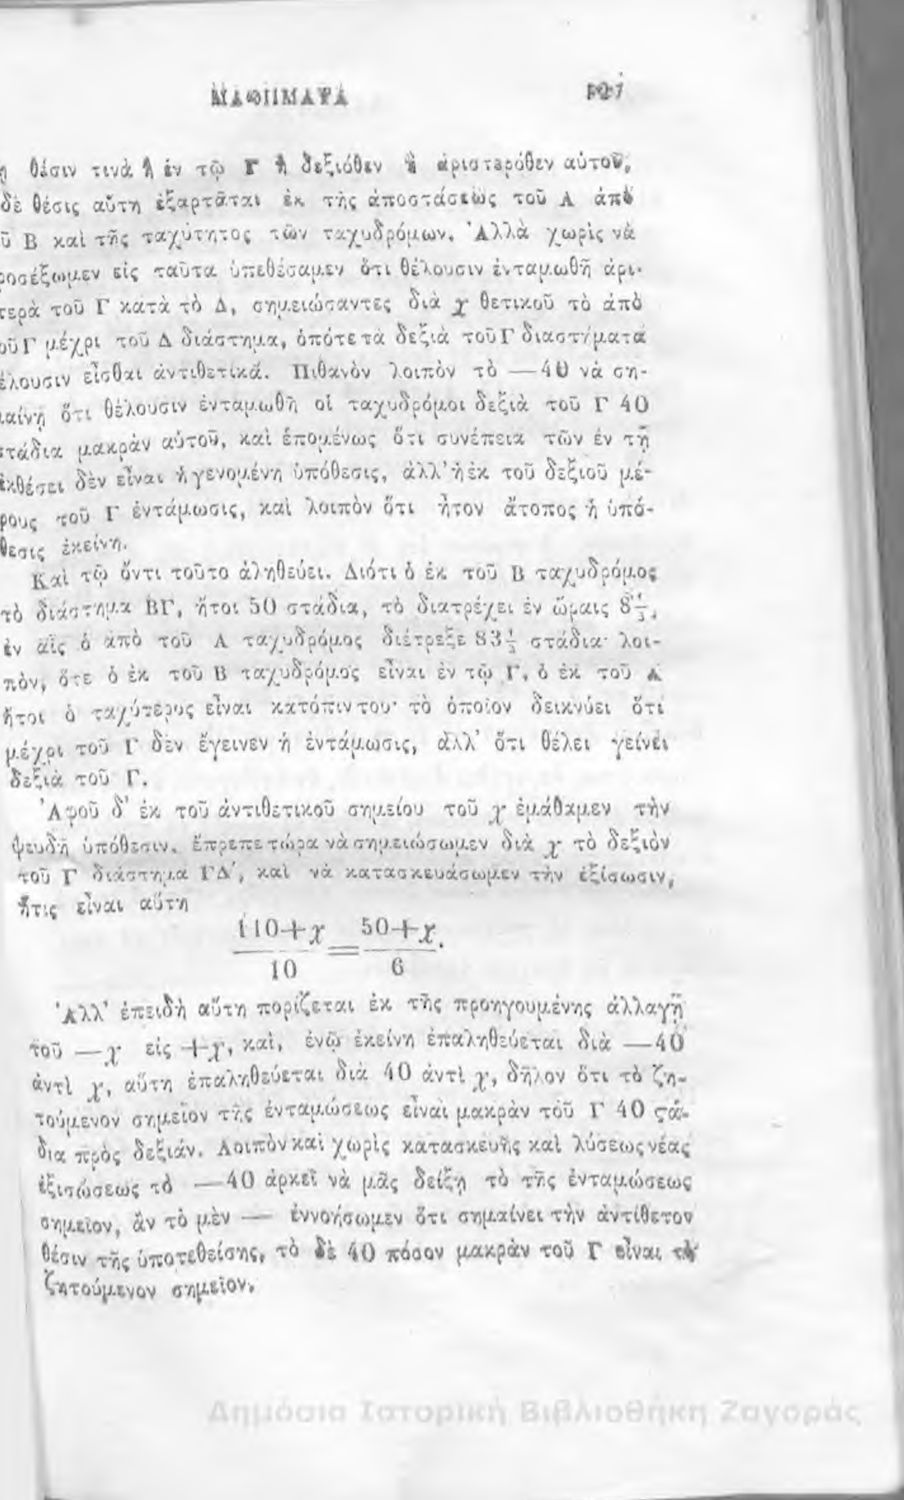 ΜΑΘΗΜΑΤΑ
θέσιν τινὰ ἢ ἐν τῷ Γ ἢ δεξιόθεν ἢ ἀριστερόθεν αὐτοῦ,
δὲ θέσις αὕτη ἐξαρτᾶται ἐκ τῆς ἀποστάσεως τοῦ Α ἀπὸ
ῦ Β καὶ τῆς ταχύτητος τῶν ταχυδρόμων. Ἀλλὰ χωρὶς νὰ
ροσέξωμεν εἰς ταῦτα ὑπεθέσαμεν ὅτι θέλουσιν ἐνταμωθῆ ἀρι-
τερὰ τοῦ Γ κατὰ τὸ Δ, σημειώσαντες διὰ χ θετικοῦ τὸ ἀπὸ
οῦ Γ μέχρι τοῦ Δ διάστημα, ὁπότε τὰ δεξιὰ τοῦ Γ διαστήματα
έλουσιν εἶσθαι ἀντιθετικά. Πιθανὸν λοιπὸν τὸ —40 νὰ ση-
μαίνῃ ὅτι θέλουσιν ἐνταμωθῆ οἱ ταχυδρόμοι δεξιὰ τοῦ Γ 40
στάδια μακρὰν αὐτοῦ, καὶ ἑπομένως ὅτι συνέπεια τῶν ἐν τῇ
ἐκθέσει δὲν εἶναι ἡ γενομένη ὑπόθεσις, ἀλλ' ἡ ἐκ τοῦ δεξιοῦ μέ-
ρους τοῦ Γ ἐντάμωσις, καὶ λοιπὸν ὅτι ἦτον ἄτοπος ἡ ὑπό-
θεσις ἐκείνη.
Καὶ τῷ ὄντι τοῦτο ἀληθεύει. Διότι ὁ ἐκ τοῦ Β ταχυδρόμος
τὸ διάστημα ΒΓ, ἤτοι 50 στάδια, τὸ διατρέχει ἐν ὥραις 8⅓,
ἐν αἷς ὁ ἀπὸ τοῦ Α ταχυδρόμος διέτρεξε 83⅓ στάδια· λοι-
πὸν, ὅτε ὁ ἐκ τοῦ Β ταχυδρόμος εἶναι ἐν τῷ Γ, ὁ ἐκ τοῦ Α
ἤτοι ὁ ταχύτερος εἶναι κατόπιν του· τὸ ὁποῖον δεικνύει ὅτι
μέχρι τοῦ Γ δὲν ἔγεινεν ἡ ἐντάμωσις, ἀλλ' ὅτι θέλει γείνει
δεξιὰ τοῦ Γ.
Ἀφοῦ δ' ἐκ τοῦ ἀντιθετικοῦ σημείου τοῦ χ ἐμάθαμεν τὴν
ψευδῆ ὑπόθεσιν, ἔπρεπε τώρα νὰ σημειώσωμεν διὰ χ τὸ δεξιὸν
τοῦ Γ διάστημα ΓΔ', καὶ νὰ κατασκευάσωμεν τὴν ἐξίσωσιν,
ἥτις εἶναι αὕτη
110+χ = 50+χ.
10 6
Ἀλλ' ἐπειδὴ αὕτη πορίζεται ἐκ τῆς προηγουμένης ἀλλαγῇ
τοῦ —χ εἰς +χ, καὶ, ἐνῷ ἐκείνη ἐπαληθεύεται διὰ —40
ἀντὶ χ, αὕτη ἐπαληθεύεται διὰ 40 ἀντὶ χ, δῆλον ὅτι τὸ ζη-
τούμενον σημεῖον τῆς ἐνταμώσεως εἶναι μακρὰν τοῦ Γ 40 ϛά-
δια πρὸς δεξιάν. Λοιπὸν καὶ χωρὶς κατασκευῆς καὶ λύσεως νέας
ἐξισώσεως τὸ —40 ἀρκεῖ νὰ μᾶς δείξῃ τὸ τῆς ἐνταμώσεως
σημεῖον, ἂν τὸ μὲν — ἐννοήσωμεν ὅτι σημαίνει τὴν ἀντίθετον
θέσιν τῆς ὑποτεθείσης, τὸ δὲ 40 πόσον μακρὰν τοῦ Γ εἶναι τὸ
ζητούμενον σημεῖον.
Δημόσια Ιστορική Βιβλιοθήκη Ζαγοράς